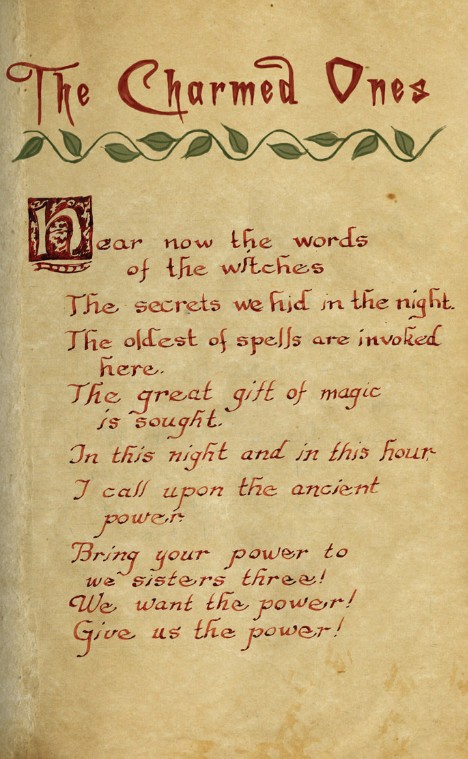 The Charmed Ones
Hear now the words
of the witches
The secrets we hid in the night.
The oldest of spells are invoked
here.
The great gift of magic
is sought.
In this night and in this hour
I call upon the ancient
power
Bring your power to
we sisters three!
We want the power!
Give us the power!